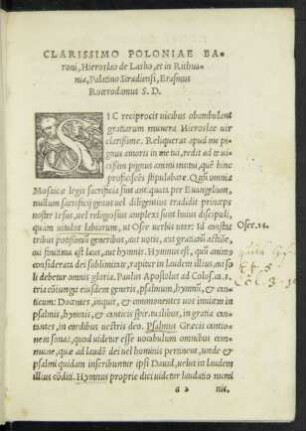 CLARISSIMO POLONIAE BA-
roni, Hieroslao de Lasko, et in Rithua-
nia, Palatino Siradiensi, Erasmus
Roterodamus S. D.
SIC reciprocis uicibus obambulant
gratiarum munera Hieroslae uir
clarissime. Reliqueras apud me pi-
gnus amoris in me tui, redit ad te ui-
cissim pignus animi mutui, que hinc
proficiscens stipulabare. Quum omnia
Mosaicæ legis sacrificia sint antiquata per Euangelium,
nullum sacrificij genus uel diligentius tradidit princeps
noster Iesus, uel religiosius amplexi sunt huius discipuli,
quam uitulos labiorum, ut Oseæ uerbis utar. Id constat
tribus potissimum generibus, aut uotis, aut gratiarum actione,
aut hymnis. Hymnus est, quum animus
considerandis dei sublimitate, rapitur in laudem illius, cui soli
debetur omnis gloria. Paulus Apostolus ad Coloss. 3.
tria coniungit eiusdem ferè generis, psalmum, hymnum, &
canticum: Docentes, inquit, & commonentes uos inuicem in
psalmis, hymnis, & canticis spiritualibus, in gratia cantan-
tes, in cordibus uestris deo. Psalmus Græcis cantio-
nem sonat, quod uidetur esse uocabulum omnibus com-
mune, quæ ad laudem dei uel hominis pertinent, unde &
psalmi quidam inscribuntur ipsi Dauid, uelut in laudem
illius conditi. Hymnus proprie dici uidetur laudatio numi
a 2 nis,
Osee. 14.